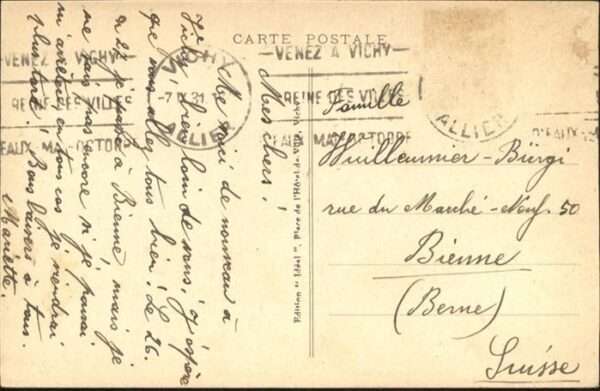 CARTE POSTALE
VENEZ A VICHY
REINE DES VILLES
D'EAUX MAI-OCTOBRE
VICHY
7
31
ALLIER
VENEZ A VICHY
REINE DES VILLES
D'EAUX MAI-OCTOBRE
ALLIER
D'EAUX MAI
Mes chers!
Me voici de nouveau à
Vichy, bien loin de vous, j'espère
que vous allez tous bien! Le 26.
27 je passe à Bienne, mais je
ne sais pas encore si je pourrai
m'arrêter en tous cas je viendrai
plus tard! Bons baisers à tous.
Mariette.
Edition "Idéal", Place de l'Hôtel de Ville, Vichy
Famille
Vuilleumier-Bürgi
rue du Marché-Neuf. 50
Bienne
(Berne)
Suisse